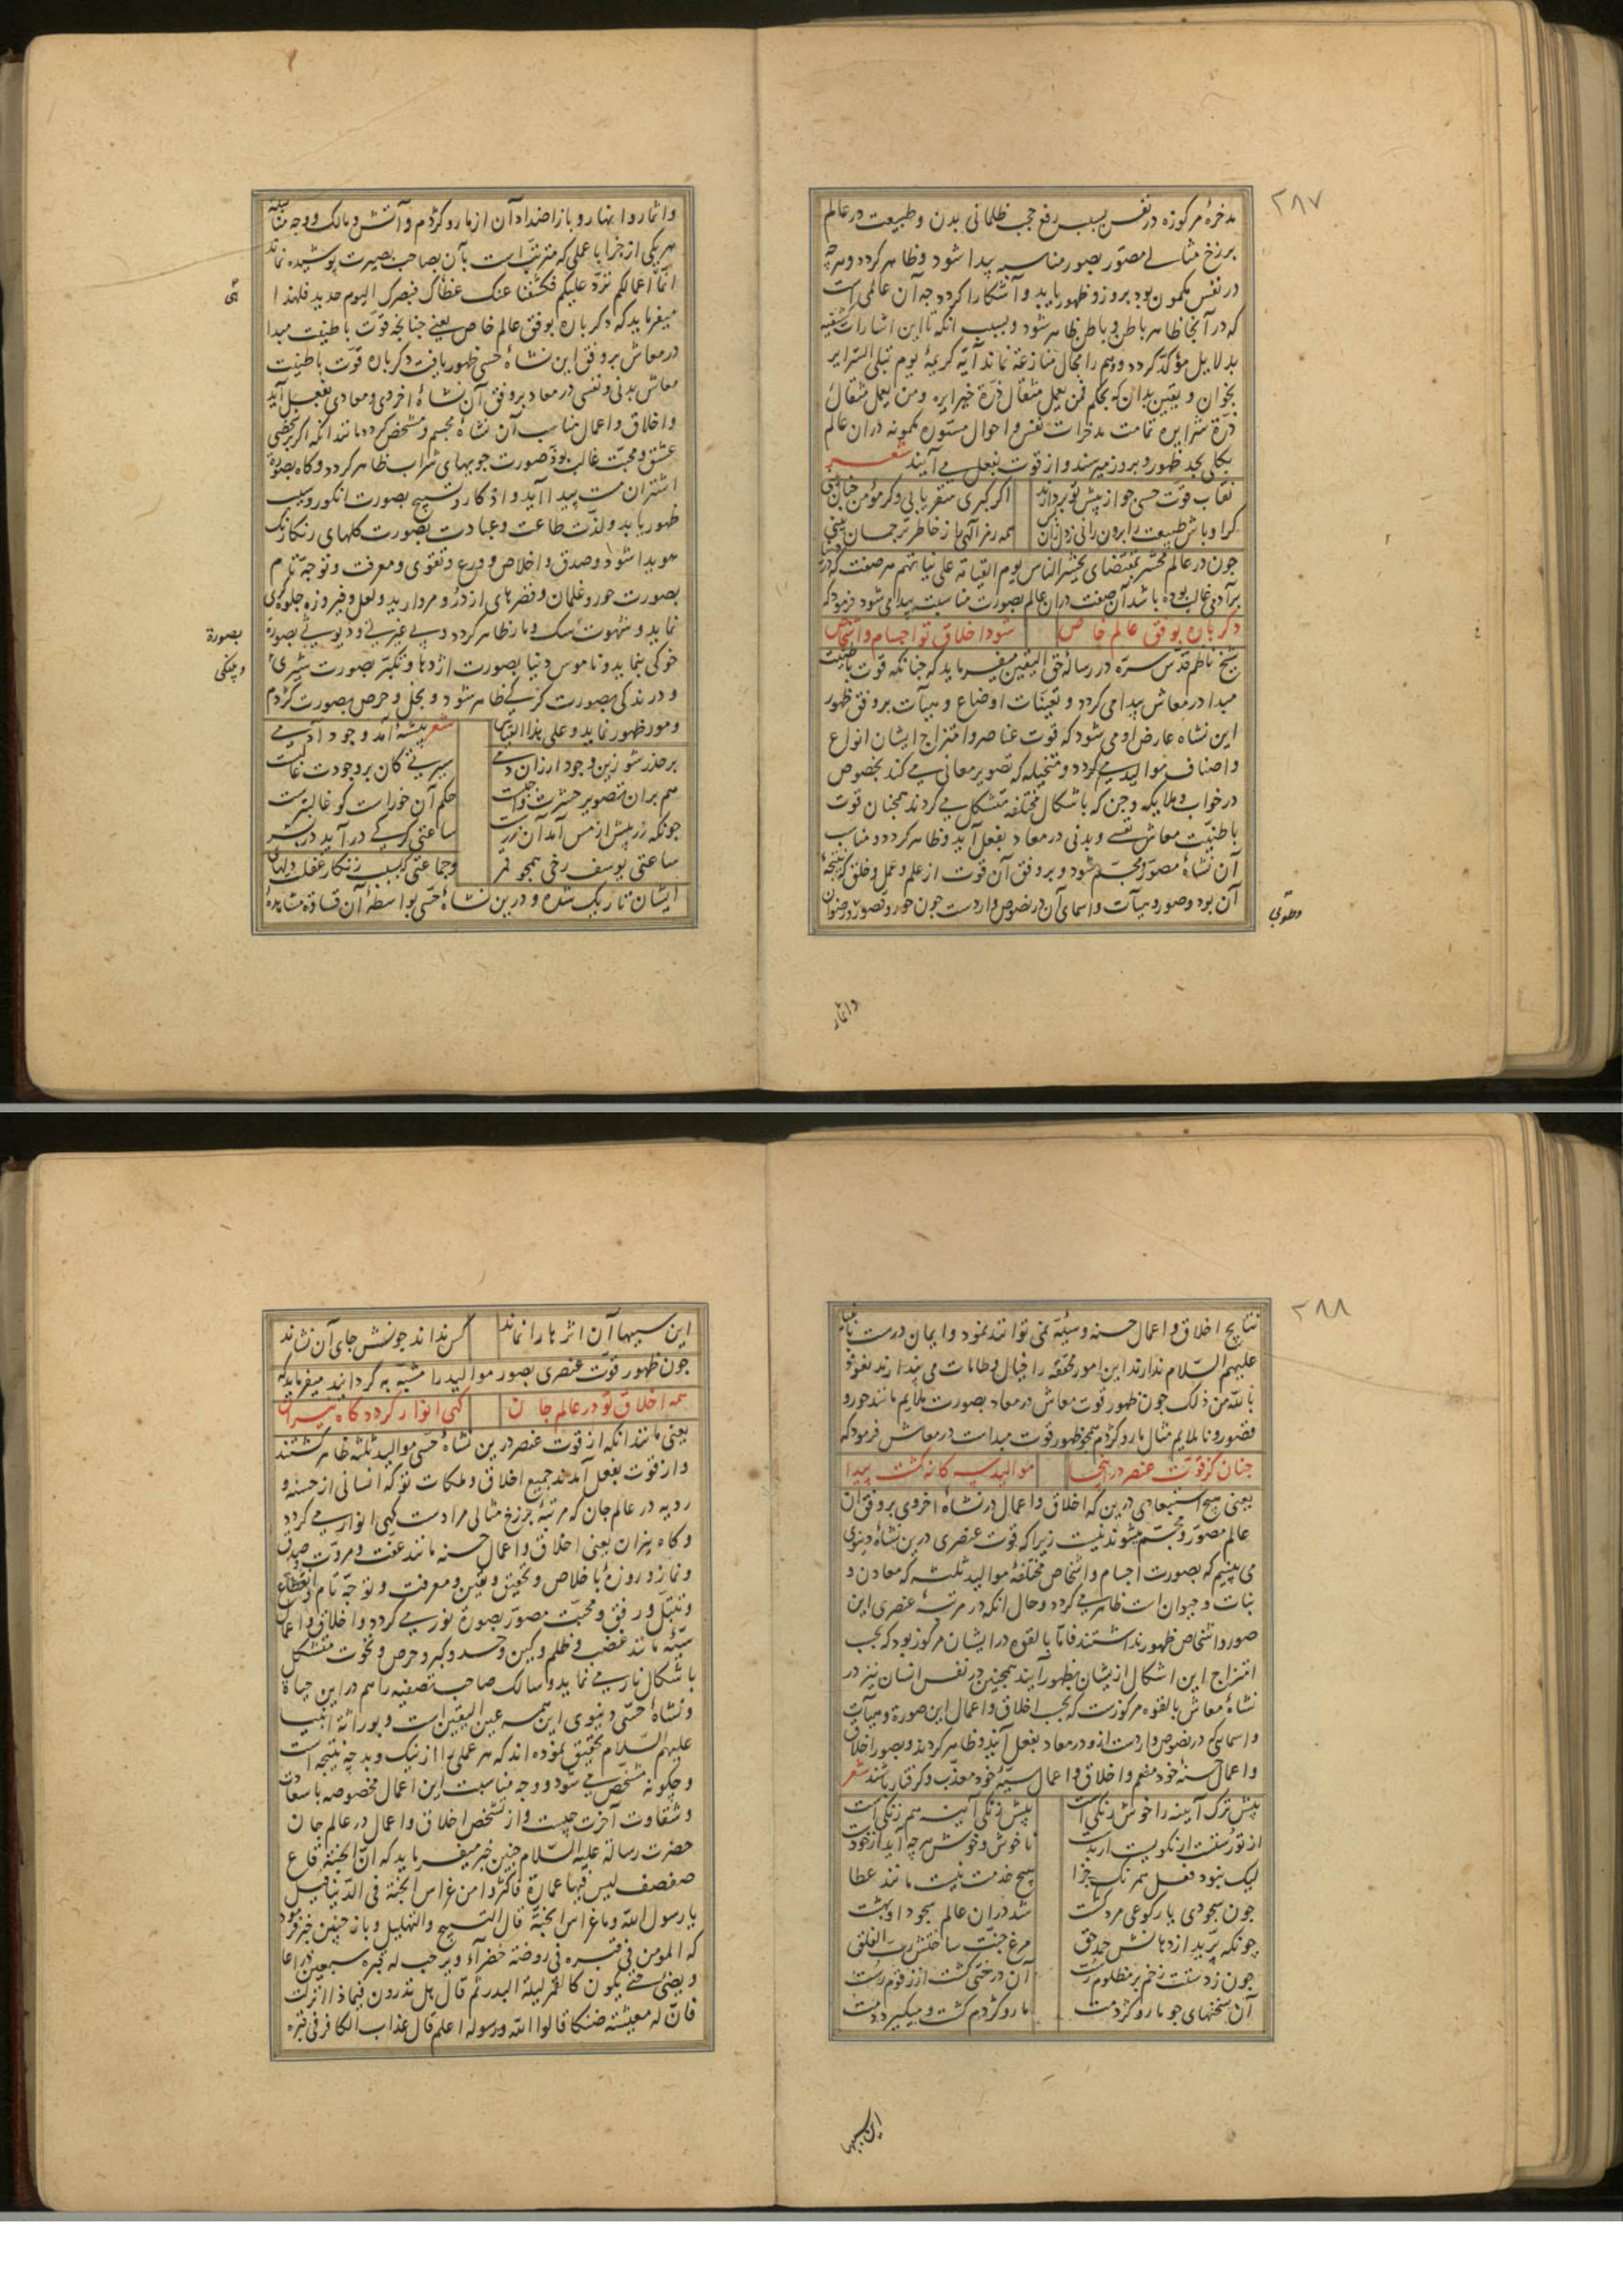 ۲۸۷
مدخره مرکوزه در نفس بسبب رفع حجب ظلمانی بدن و طبیعت در عالم
برزخ مثالی مصور بصور مناسبه پیدا شود و ظاهر کردد و هر چه
در نفس مکمون بود بروز و ظهور یابد و آشکارا کردد چه آن عالمی است
که در آنجا ظاهر باطن و باطن ظاهر شود و بسبب آنکه تا این اشارات
بدلایل مؤکد کردد و وهم را مجال منازعه نماند آیه کریمۀ یوم تبلی السرایر
بخوان و یقین بدان که بحکم فمن یعمل مثقال ذرة خیرا یره و من یعمل مثقال
ذرة شرا یره تمامت مدخرات نفس و احوال مستوره مکمونه در آن عالم
بکلی بحد ظهور و بروز میرسند و از قوت بفعل می آیند شعر
نقاب قوت حسی چو از پیش تو بردارند اکر کبری سقر یابی و کر مؤمن جنان بینی
کر اوباش طبیعت را برون رانی ز دل زان پس همه رمز الهی را ز خاطر ترجمان بینی
چون در عالم محشر بمقتضای یحشر الناس یوم القیامة علی نیاتهم هر صفت که در دنیا
بر آدمی غالب بوده باشد آن صفت در آن عالم بصورت مناسبت پیدا می شود فرمود که
دکر باره بوفق عالم خاص شود اخلاق تو اجسام و اشخاص
شیخ ناظم قدس سره در رسالۀ حق الیقین میفرماید که چنانکه قوت باطنیت
مبدا در معاش پیدا می کردد و تعینات اوضاع و هیآت بر وفق ظهور
این نشاه عارض او می شود که قوت عناصر و امتزاج ایشان انواع
و اصناف موالید می کردد و متخیله که تصویر معانی می کند بخصوص
در خواب و ملایکه و جن که باشکال مختلفه متشکل می کردند همچنان قوت
باطنیت معاش نفسی و بدنی در معاد بفعل آید و ظاهر کردد و مناسب
آن نشاۀ مصور و مجسم شود و بر وفق آن قوت از علم و عمل و خلق که نتیجۀ
آن بود و صور و هیآت و اسمای آن در نصوص واردست چون حور و قصور و رضوان
وطوبی
واثمار
واثمار و انهار و باز اضداد آن از مار و کژدم و آتش و مالک و وجه مناسبه
هر یکی از جزا با عملی که مترتب است بآن بصاحب بصیرت پوشیده نماند
انما اعمالکم ترد علیکم فکشفنا عنک غطآک فبصرک الیوم حدید فلهذا
میفرماید که دکر باره بوفق عالم خاص یعنی چنانچه قوت باطنیت مبدا
در معاش بر وفق این نشاۀ حسی ظهور یافت دکر باره قوت باطنیت
معاش بدنی و نفسی در معاد بر وفق آن نشاۀ اخروی و معادی بفعل آید
و اخلاق و اعمال مناسب آن نشاۀ مجسم و مشخص کردد مانند آنکه اکر بر شخصی
عشق و محبت غالب بود صورت جویهای شراب ظاهر کردد و کاه بصورة
اشتران مست پیدا آید و اذکار و تسبیح بصورت انکور و سیب
ظهور یابد و لذت طاعت و عبادت بصورت کلهای رنکارنک
هویدا شود و صدق و اخلاص و ورع و تقوی و معرفت و توجه تام
بصورت حور و غلمان و قصرهای از در و مروارید و لعل و فیروزه جلوه کری
نماید و شهوت سک و مار ظاهر کردد و بی غیرتی و دیوثی بصورة
خوکی بنماید و ناموس دنیا بصورت اژدها و تکبر بصورت شیری
و درندکی بصورت کرکی ظاهر شود و بخل و حرص بصورت کژدم
و مور ظهور نماید و علی هذا القیاس شعر بیشۀ آمد وجود آدمی
بر حذر شو زین وجود ار زان دمی سیرتی کان بر وجودت غالبست
هم بران تصویر حشرت واجبست حکم آن خوراست کو غالبترست
چونکه زر بیش از مس آمد آن زرست ساعتی کرکی در آید در بشر
ساعتی یوسف رخی همچو قمر و جماعتی که بسبب زنکار غفلت دلهای
ایشان تاریک شده و درین نشاۀ حسی بواسطۀ آن قساوة مشاهدۀ
بصورة
و پلنکی
۲۸۸
نتایج اخلاق و اعمال حسنه و سیئه نمی توانند نمود و ایمان درست بانبیا
علیهم السلام ندارند این امور محققه را خیال و طامات می پندارند نعوذ
بالله من ذلک چون ظهور قوت معاش در معاد بصورت ملایم مانند حور و
قصور و ناملایم مثال مار و کژدم همچو ظهور قوت مبداست در معاش فرمود که
چنان کز قوت عنصر در اینجا موالید سه کانه کشت پیدا
یعنی هیچ استبعادی درین که اخلاق و اعمال در نشاۀ اخروی بر وفق آن
عالم مصور و مجسم میشوند نیست زیرا که قوت عنصری درین نشاۀ دنیوی
می بینیم که بصورت اجسام و اشخاص مختلفۀ موالید ثلثه که معادن و
نبات و حیوان است ظاهر می کردد و حال آنکه در مرتبۀ عنصری این
صور و اشخاص ظهور نداشتند فاما بالقوه در ایشان مرکوز بود که بحسب
امتزاج این اشکال ازیشان بظهور آیند همچنین در نفس انسان نیز در
نشاۀ معاش بالقوه مرکوزست که بحسب اخلاق و اعمال این صورة و هیآت
و اسمایی که در نصوص واردست ازو در معاد بفعل آیند و ظاهر کردند و بصور اخلاق
و اعمال حسنۀ خود منعم و اخلاق و اعمال سیئۀ خود معذب و کرفتار باشند شعر
پیش ترک آیینه را خوش رنکی است پیش زنکی آینه هم زنکی است
از تو رستست ار نکویست ار بدست ناخوش و خوش هر چه آید از خودست
لیک نبود فعل همرنک جزا هیچ خدمت نیست مانند عطا
چون سجودی یا رکوعی مرد کشت شد دران عالم سجود او بهشت
چونکه پرید از دهانش حمد حق مرغ جنت ساختش رب الفلق
چون ز دستت زخم بر مظلوم رست آن درختی کشت ازو زقوم رست
آن سخنهای چو مار و کژدمت مار و کژدم کشت و میکیرد دمت
این سببها
این سببها آن اثرها را نماند کس نداند چونش جای آن نشاند
چون ظهور قوت عنصری بصور موالید را مشبه به کردانید میفرماید که
همه اخلاق تو در عالم جان کهی انوار کردد کاه نیران
یعنی مانند آنکه از قوت عنصر درین نشاۀ حسی موالید ثلثه ظاهر کشتند
و از قوت بفعل آمدند جمیع اخلاق و ملکات تو که انسانی از حسنه و
ردیه در عالم جان که مرتبۀ برزخ مثالی مرادست کهی انوار می کردد
و کاه نیران یعنی اخلاق و اعمال حسنه مانند عفت و مروت و صدق
و نماز و روزۀ باخلاص و تحقیق و یقین و معرفت و توجه تام و انقطاع
و تبتل و رفق و محبت مصور بصورة نور می کردد و اخلاق و اعمال
سیئه مانند غضب و ظلم و کین و حسد و کبر و حرص و نخوت متشکل
باشکال نار می نماید و سالک صاحب تصفیه را هم در این حیاة
و نشاۀ حسی دنیوی این همه عین الیقین است و بوراثة انبیا
علیهم السلام تحقیق نموده اند که هر عملی را از نیک و بد چه نتیجه است
و چکونه مشخص می شود و وجه مناسبت این اعمال مخصوصه با سعادت
و شقاوت آخرت چیست و از تشخص اخلاق و اعمال در عالم جان
حضرت رسالة علیه السلام چنین خبر میفرماید که ان الجنة قاع
صفصف لیس فیها عمارة فاکثروا من غراس الجنة فی الدنیا قیل
یا رسول الله و ما غراس الجنة قال التسبیح والتهلیل و باز چنین خبر فرمود
که المومن فی قبره فی روضة خضرآء و یرحب له قبره سبعین ذراعا
و یضئ حتی یکون کالقمر لیلة البدر ثم قال هل تدرون فیما ذا انزلت
فان له معیشة ضنکا قالوا الله و رسوله اعلم قال عذاب الکافر فی قبره